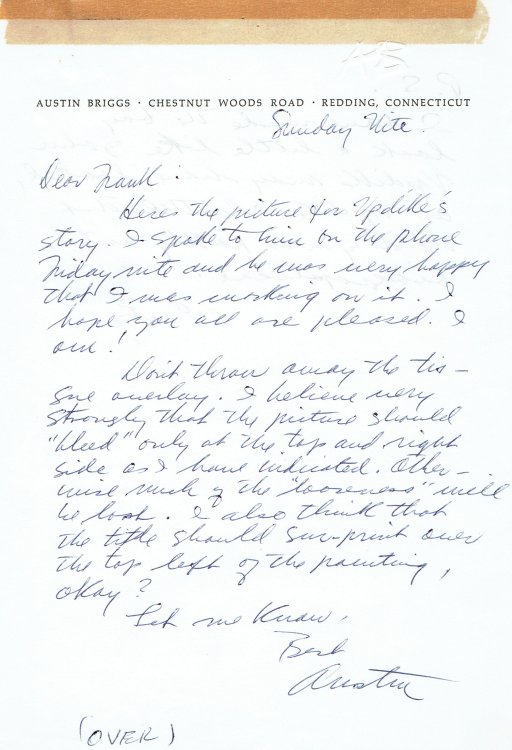 AUSTIN BRIGGS · CHESTNUT WOODS ROAD · REDDING, CONNECTICUT
Sunday Nite.
Dear Frank:
Here's the picture for Updike's
story. I spoke to him on the phone
Friday nite and he was very happy
that I was working on it. I
hope you all are pleased. I
am!
Don't throw away the tis-
sue overlay. I believe very
strongly that the picture should
"bleed" only at the top and right
side as I have indicated. Other-
wise much of the "looseness" will
be lost. I also think that
the title should sur-print over
the top left of the painting,
okay?
Let me know.
Best
Austin
(OVER)